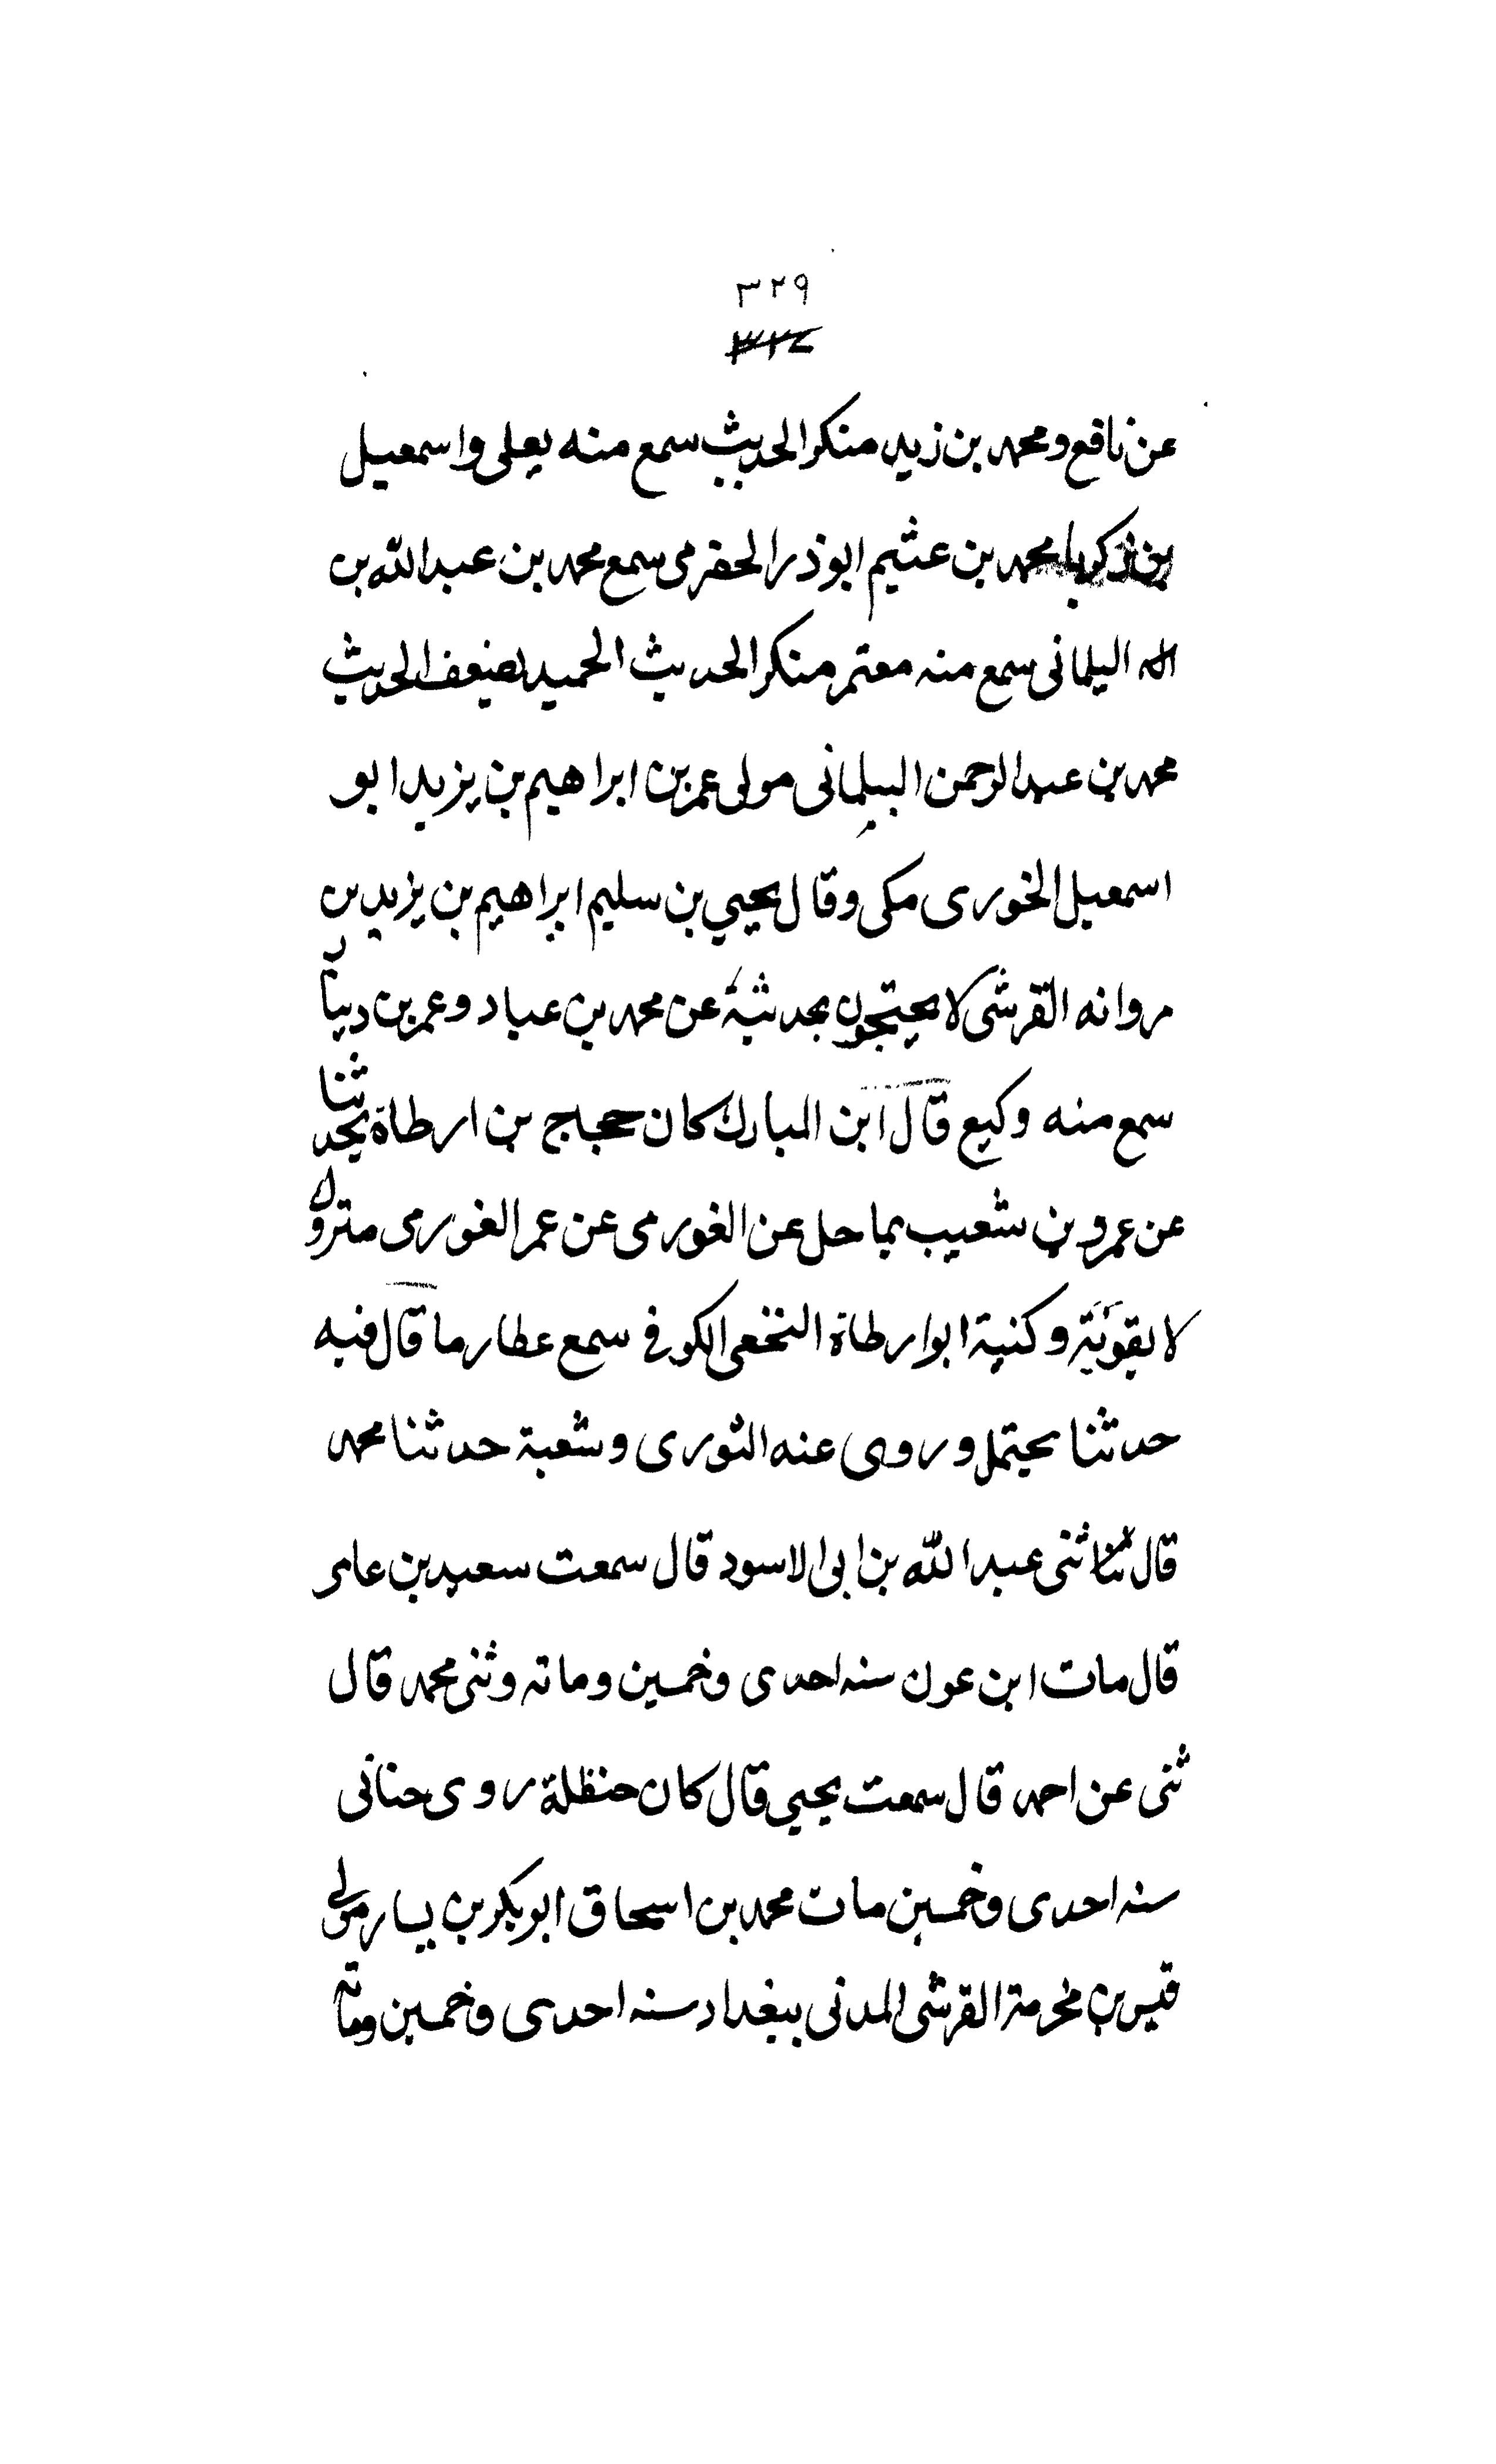 ٣٢٩
عن نافع ومحمد بن زيد منكر الحديث سمع منه يعلى واسمعيل
بن زكريا محمد بن عثيم ابوذر الحضرمى سمع محمد بن عبد الله بن
اليلمانى سمع منه معتمر منكر الحديث الحميد يضعف الحديث
محمد بن عبد الرحمن البيلمانى مولى عمر بن ابراهيم بن يزيد ابو
اسمعيل الخورى مكى وقال يحيي بن سليم ابراهيم بن يزيد بن
مروانه القرشى لا يحتجون بحدثية عن محمد بن عباد وعمر بن دينار
سمع منه وكيع قال ابن المبارك كان حجاج بن ارطاة يحدثنا
عن عمرو بن شعيب بما حل عن الغورمى عن عمر الغورمى متروك
لا يقويَة وكنية ابوارطاة النخعى الكوفى سمع عطار ما قال فيه
حدثنا يحتمل وروى عنه الثورى وشعبة حدثنا محمد
قال ثنى عبد الله بن ابى الاسود قال سمعت سعيد بن عامر
قال مات ابن عون سنه احدى وخمسين وماته وثنى محمد قال
ثنى عن احمد قال سمعت يحيي قال كان حنظلة روى حنانى
سنه احدى وخمسين مات محمد بن اسحاق ابو بكر بن يسار مولى
قيس بن مخرمة القرشى المدنى ببغداد سنه احدى وخمسين وماته